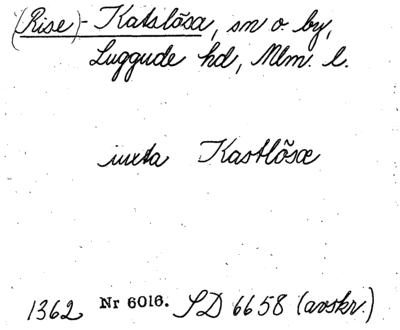 (Rise)- Katslösa, sn o. by,
Luggude hd, Mlm. l.
iuxta Kastlösæ
1362 Nr 6016. SD 6658 (avskr.)